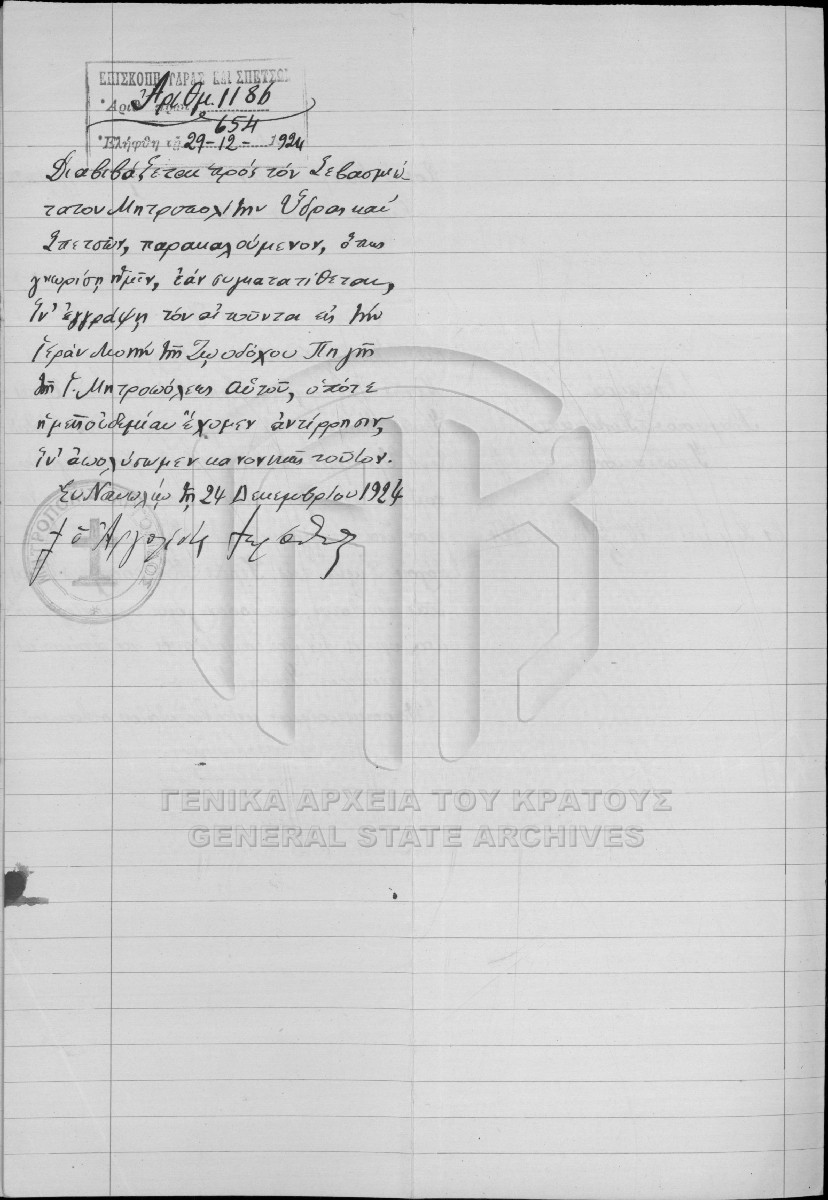 ΕΠΙΣΚΟΠΗ ΥΔΡΑΣ ΚΑΙ ΣΠΕΤΣΩΝ
Ἀριθμ. 1186
654
Ἐλήφθη τῇ 29-12-1924
Διαβιβάζεται πρός τόν Σεβασμιώ
τατον Μητροπολίτην Ὕδρας καί
Σπετσῶν, παρακαλούμενον, ὅπως
γνωρίσῃ ἡμῖν, ἐάν συγκατατίθεται,
ἵν' ἐγγράψῃ τόν αἰτοῦντα εἰς τήν
Ἱεράν Μονήν τῆς Ζωοδόχου Πηγῆς
τῆς Ἱ. Μητροπόλεως Αὐτοῦ, ὁπότε
ἡμεῖς οὐδεμίαν ἔχομεν ἀντίρρησιν,
ἵν' ἀπολύσωμεν κανονικῶς τοῦτον.
Ἐν Ναυπλίῳ τῇ 24 Δεκεμβρίου 1924
† ὁ Ἀργολίδος
ΓΕΝΙΚΑ ΑΡΧΕΙΑ ΤΟΥ ΚΡΑΤΟΥΣ
GENERAL STATE ARCHIVES